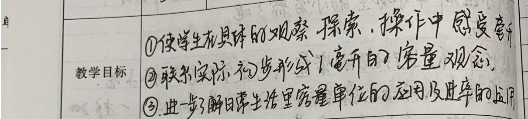 教学目标
①使学生在具体的观察、探索、操作中感受毫升
②联系实际初步形成1毫升的容量观念。
③进一步了解日常生活里容量单位的应用及进率的应用